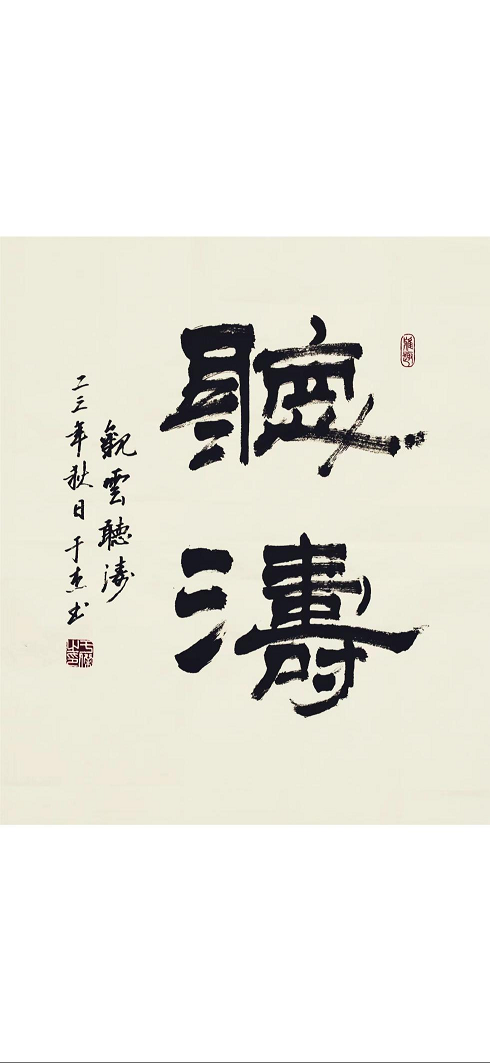 聽濤
觀雲聽濤
二三年秋日于杰书